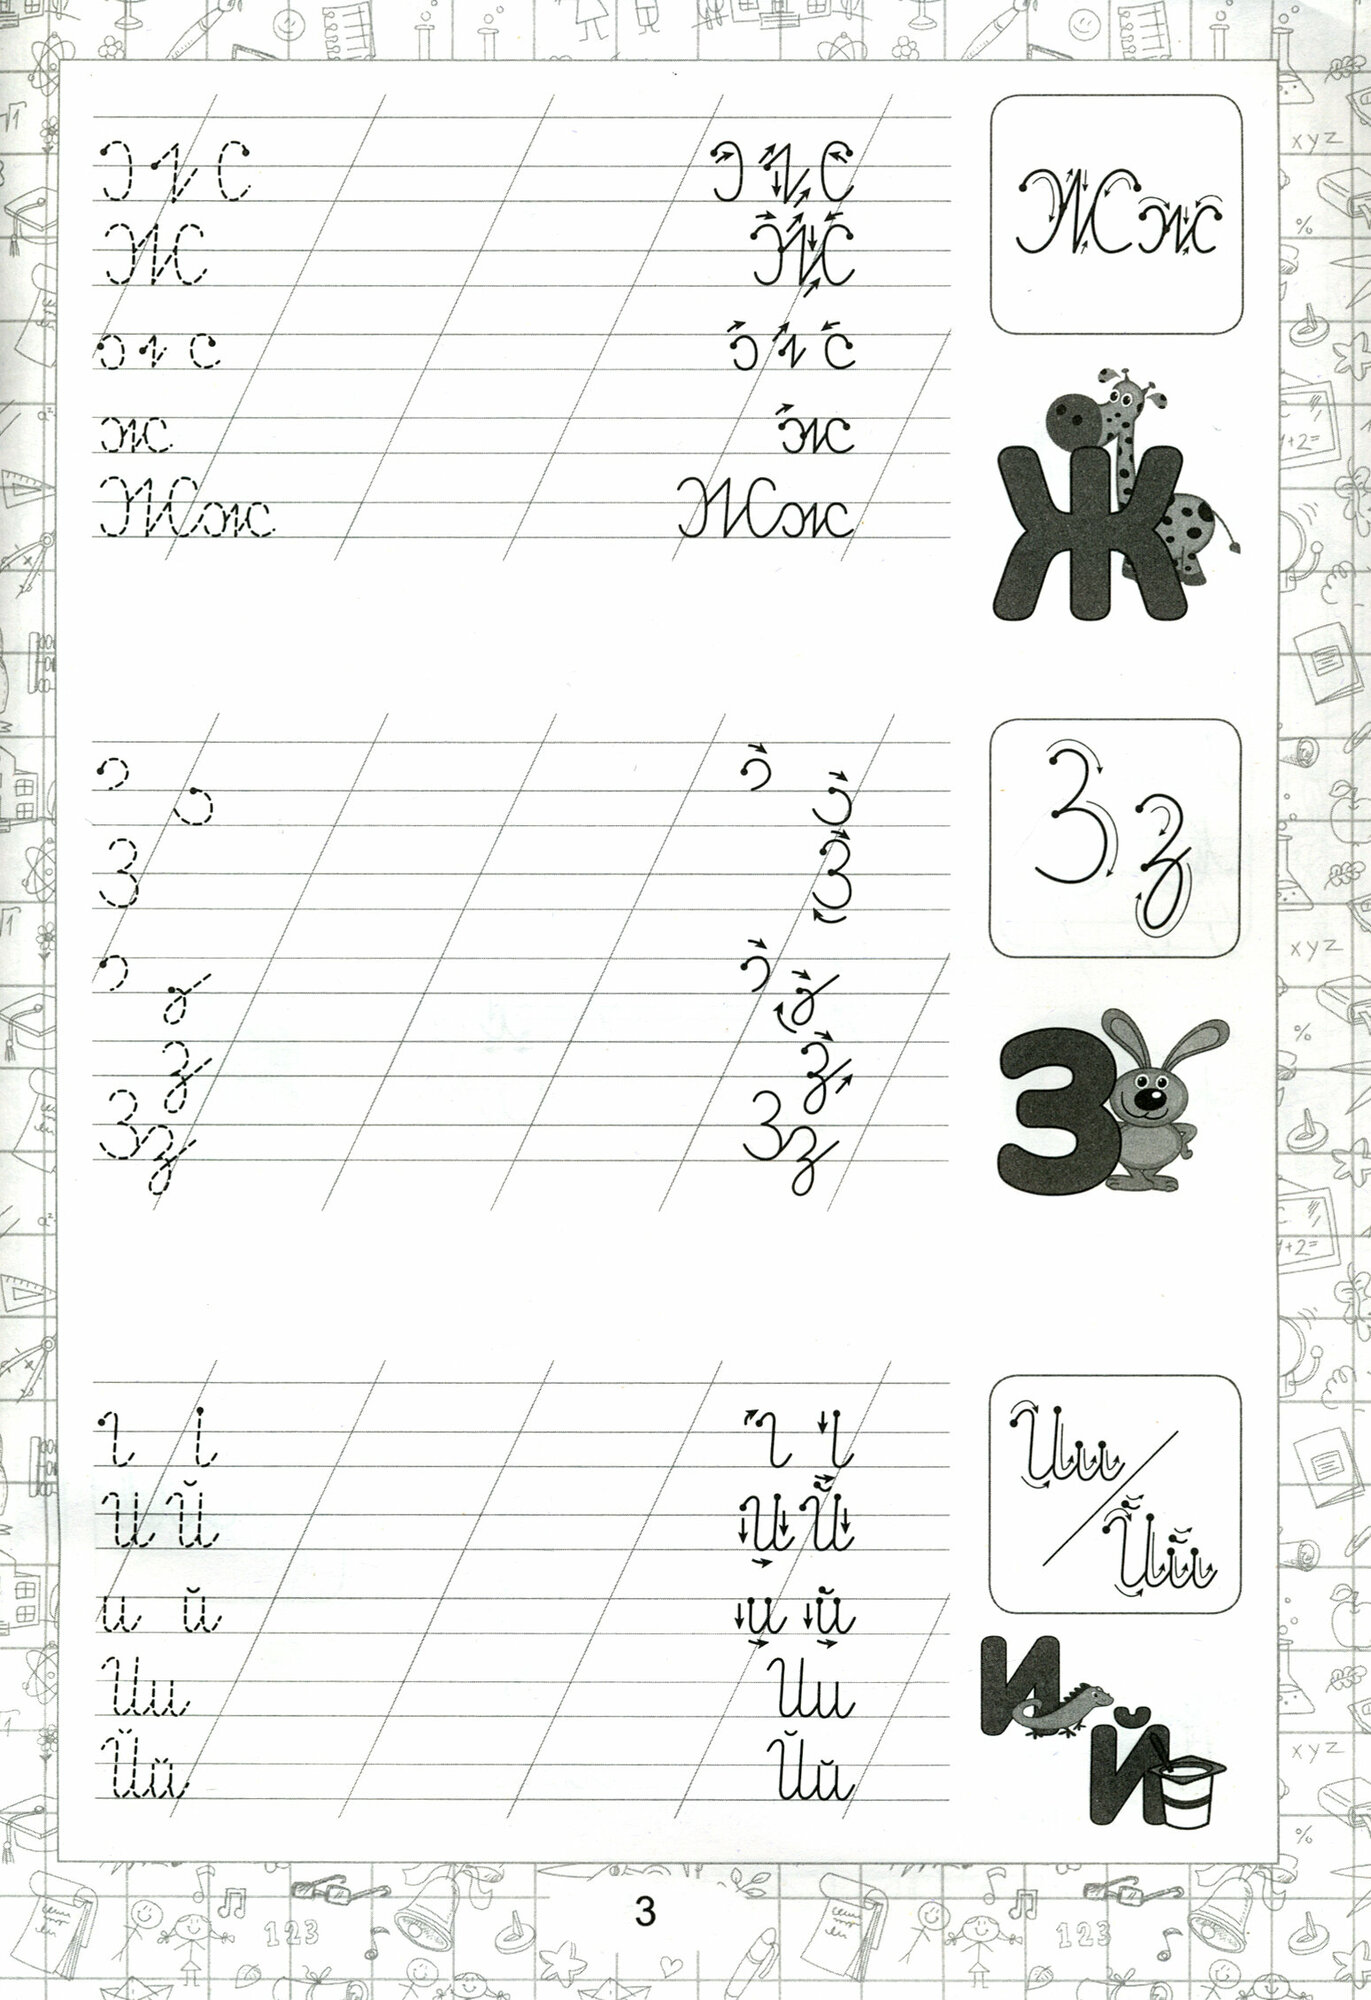 Ж Ж
Жж
ж ж
Жж Жж
Ж
З З
Зз
з з
Зз Зз
З
И Й И Й
Ии
Йй
и й и й
Ии Ии
Йй Йй
И
Й
3